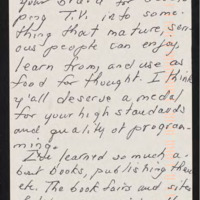 your bravo for
ping T.V. is to some-
thing that mature, ser-
ious people can enjoy,
learn from, and use as
food for thought. I think
y'all deserve a medal
for your high standards
and quality of program-
ming.
I've learned so much a-
bout books, publishing them
etc. The book fairs and sites